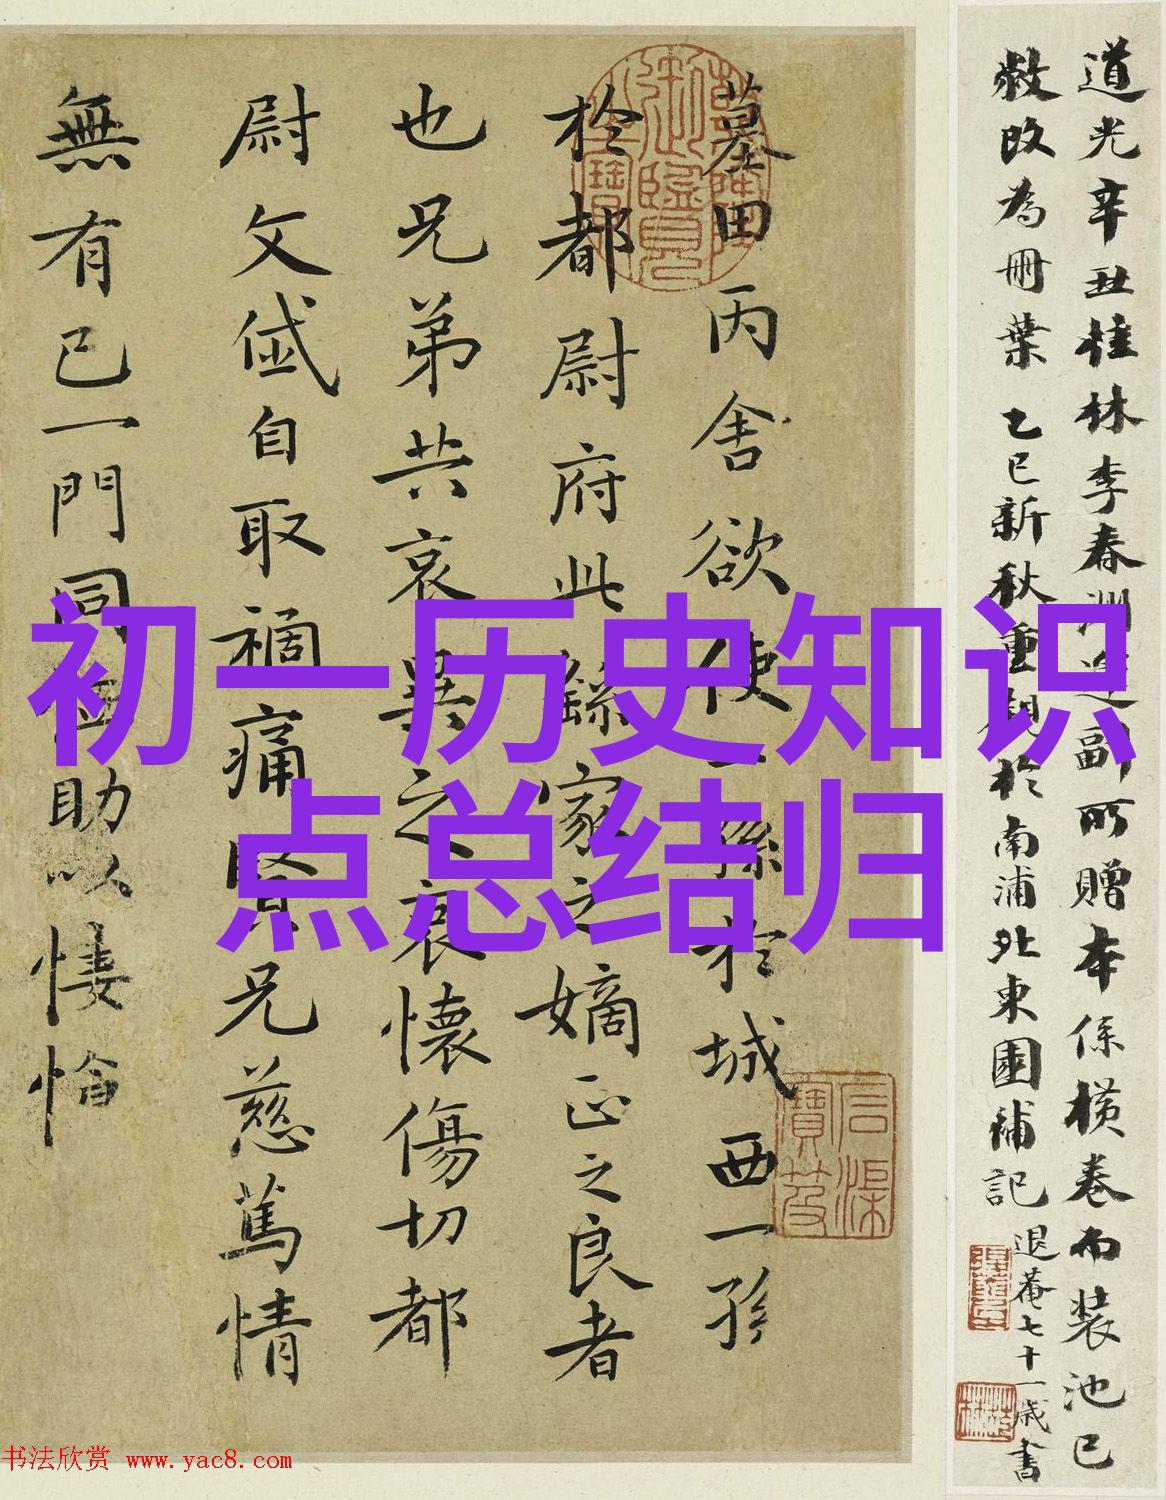 道光辛丑桂林李春洲造副所贈本係橫卷而裝池已
敝改為冊葉 乙巳新秋重觀於南浦北東園補記 退菴七十一歲書
墓田丙舍欲使一孫於城西一孫
於都尉府此繇家之嫡正之良者
也兄弟共哀異之哀懷傷切都
尉文岱自取禍痛賢兄慈篤情
無有已一門同恤助以悽愴
初一历史知识
点总结归
书法欣赏 www.yac8.com